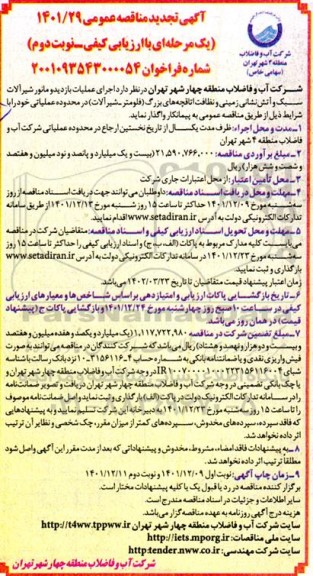 آگهی تجدید مناقصه عمومی ۱۴۰۱/۲۹
(یک مرحله‌ای با ارزیابی کیفی_نوبت دوم)
شماره فراخوان ۲۰۰۱۰۹۳۵۴۳۰۰۰۰۵۴
شرکت آب و فاضلاب
منطقه ۴ شهر تهران
(سهامی خاص)
شرکت آب و فاضلاب منطقه چهار شهر تهران در نظر دارد اجرای عملیات بازدید و مانور شیرآلات
سبک و آتش‌نشانی زمینی و نظافت اتاقچه‌های بزرگ (فلومتر_شیرآلات) در محدوده عملیاتی خود را با
شرایط ذیل از طریق مناقصه عمومی به پیمانکار واگذار نماید.
۱_مدت و محل اجراء: ظرف مدت یکسال از تاریخ نخستین ارجاع در محدوده عملیاتی شرکت آب و
فاضلاب منطقه ۴ شهر تهران
۲_مبلغ برآوردی مناقصه: ۲۱,۵۹۰,۷۶۶,۰۰۰ (بیست و یک میلیارد و پانصد و نود میلیون و هفتصد
و شصت و شش هزار) ریال
۳_محل تأمین اعتبار: از محل اعتبارات جاری شرکت
۴_مهلت و محل دریافت اسناد مناقصه: داوطلبان می‌توانند جهت دریافت اسناد مناقصه از روز
سه‌شنبه مورخ ۱۴۰۱/۱۲/۰۹ حداکثر تا ساعت ۱۵ روز شنبه مورخ ۱۴۰۱/۱۲/۱۳ از طریق سامانه
تدارکات الکترونیکی دولت به آدرس www.setadiran.ir اقدام نمایند.
۵_مهلت و محل تحویل اسناد ارزیابی کیفی و اسناد مناقصه: متقاضیان شرکت در مناقصه
می‌بایست کلیه مدارک مربوط به پاکات (الف، ب، ج) و اسناد ارزیابی کیفی را حداکثر تا ساعت ۱۵ روز
سه‌شنبه مورخ ۱۴۰۱/۱۲/۲۳ در سامانه تدارکات الکترونیکی دولت به آدرس www.setadiran.ir
بارگذاری و ثبت نمایند.
زمان اعتبار پیشنهاد قیمت متقاضیان تا تاریخ ۱۴۰۲/۰۳/۲۳ می‌باشد.
۶_تاریخ بازگشایی پاکات ارزیابی و امتیازدهی براساس شاخص‌ها و معیارهای ارزیابی
کیفی در ساعت ۱۰ صبح روز چهارشنبه مورخ ۱۴۰۱/۱۲/۲۴ و بازگشایی پاکات ج (پیشنهاد
قیمت) در همان روز می‌باشد.
۷_مبلغ تضمین شرکت در مناقصه ۱,۱۱۷,۷۲۲,۹۸۰ (یک میلیارد و یکصد و هفده میلیون و هفتصد
و بیست و دو هزار و نهصد و هشتاد) ریال می‌باشد که شرکت‌کنندگان در مناقصه می‌توانند به صورت
فیش واریزی نقدی و یا ضمانتنامه بانکی به شماره حساب
در وجه شرکت آب و فاضلاب منطقه چهار شهر تهران و
یا چک بانکی تضمینی در وجه شرکت آب و فاضلاب منطقه چهار شهر تهران دریافت و تصویر ضمانت‌نامه
را در سامانه تدارکات الکترونیک دولت در پاکت الف) بارگذاری و ثبت نماید و اصل ضمانت‌نامه موصوف
را تا ساعت ۱۵ روز سه‌شنبه مورخ ۱۴۰۱/۱۲/۲۳ به دبیرخانه این شرکت تسلیم نمایند و به پیشنهادهایی
که فاقد سپرده، سپرده‌های مخدوش، سپرده‌های کمتر از میزان مقرر، چک شخصی و نظایر آن ترتیب
اثر داده نخواهد شد.
۸_به پیشنهادات فاقد امضاء، مشروط، مخدوش و پیشنهاداتی که بعد از مدت مقرر این آگهی واصل شود
مطلقاً ترتیب اثر داده نخواهد شد.
۹_زمان چاپ آگهی: نوبت اول ۱۴۰۱/۱۲/۰۹ و نوبت دوم ۱۴۰۱/۱۲/۱۱
برگزار کننده مناقصه در رد یا قبول یک یا کلیه پیشنهادات مختار است.
سایر اطلاعات و جزئیات در اسناد مناقصه مندرج است.
هزینه درج آگهی روزنامه به عهده مناقصه‌گزار می‌باشد.
سایت شرکت آب و فاضلاب منطقه چهار شهر تهران http://t4ww.tppww.ir
سایت ملی مناقصات: http://iets.mporg.ir
سایت شرکت مهندسی: http:tender.nww.co.ir
شرکت آب و فاضلاب منطقه چهار شهر تهران